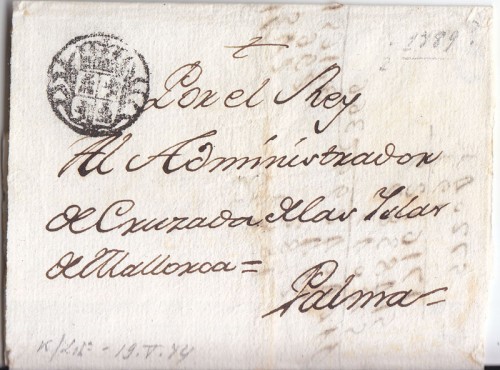 1789
Por el Rey
Al Administrador
de Cruzada de las Yslas
de Mallorca =
Palma =
19.V.74